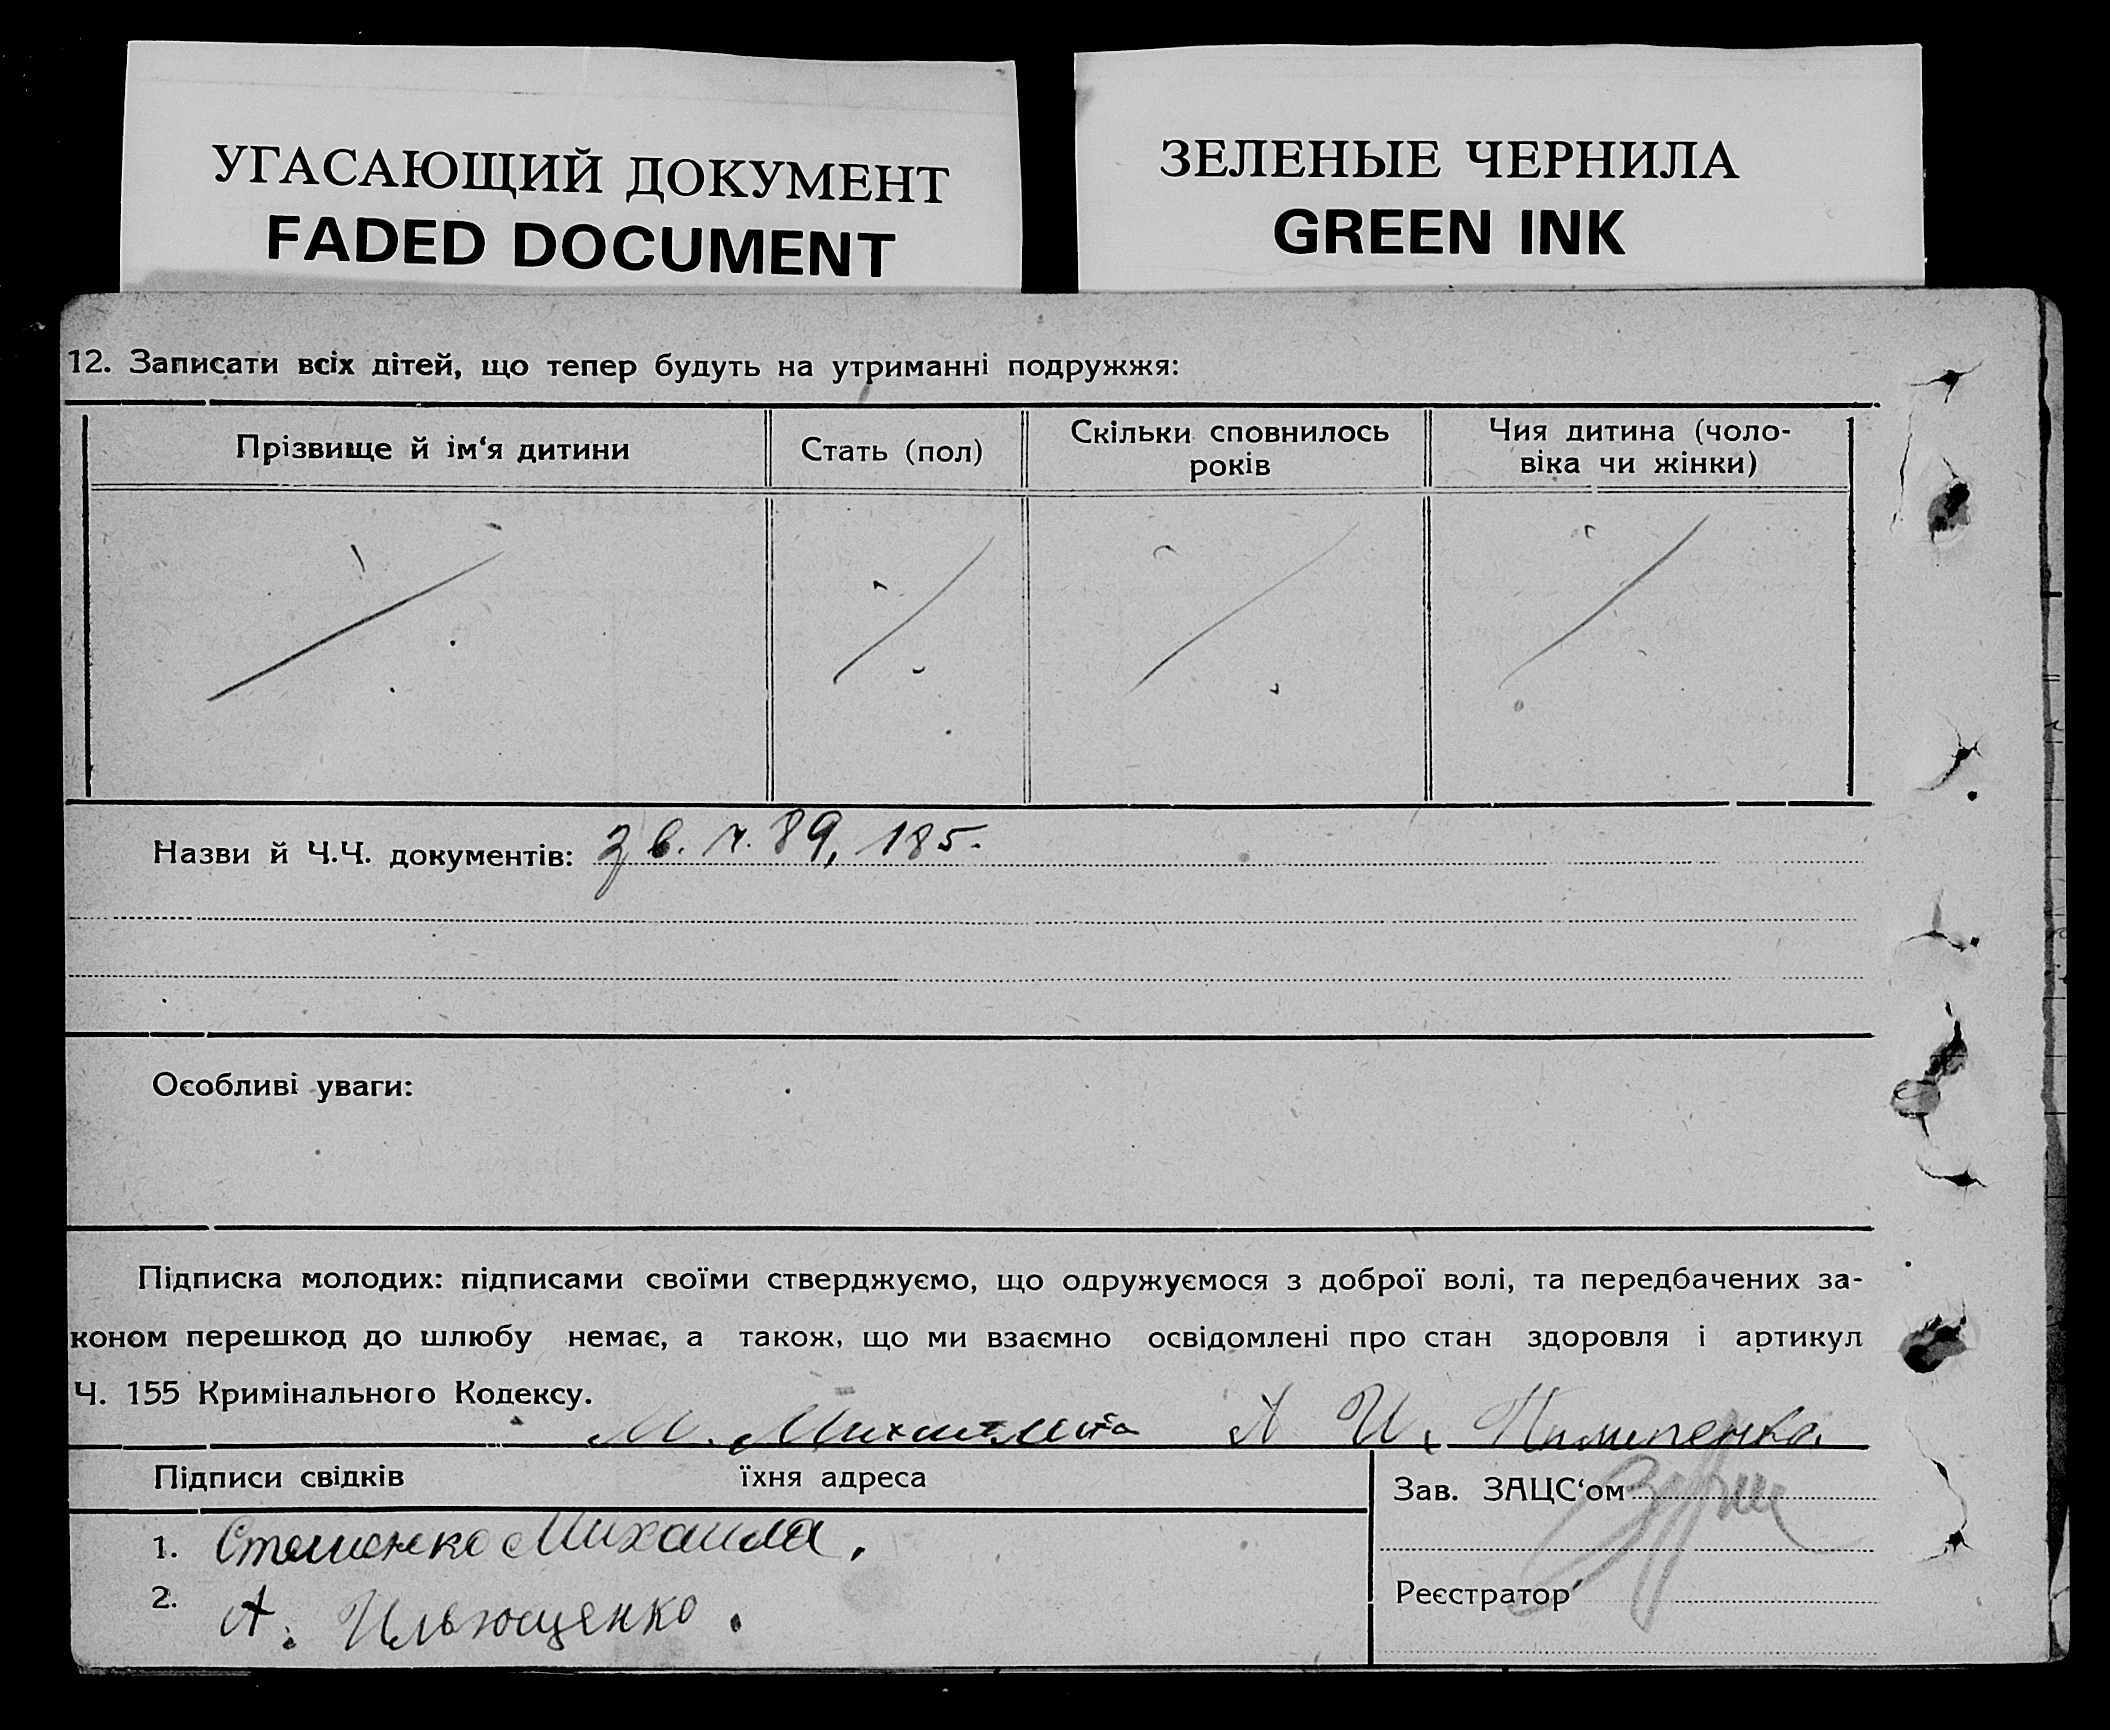 УГАСАЮЩИЙ ДОКУМЕНТ
FADED DOCUMENT
ЗЕЛЕНЫЕ ЧЕРНИЛА
GREEN INK
12. Записати всіх дітей, що тепер будуть на утриманні подружжя:
Прізвище й ім‘я дитини
Стать (пол)
Скільки сповнилось
років
Чия дитина (чоло-
віка чи жінки)
Назви й Ч.Ч. документів: зв. ч. 89, 185.
Особливі уваги:
Підписка молодих: підписами своїми стверджуємо, що одружуємося з доброї волі, та передбачених за-
коном перешкод до шлюбу немає, а також, що ми взаємно освідомлені про стан здоровля і артикул
Ч. 155 Кримінального Кодексу.
М. А И. Пилипенко
Підписи свідків їхня адреса
Зав. ЗАЦС‘ом
1. Михаила.
2. А. Ильющенко.
Реєстратор